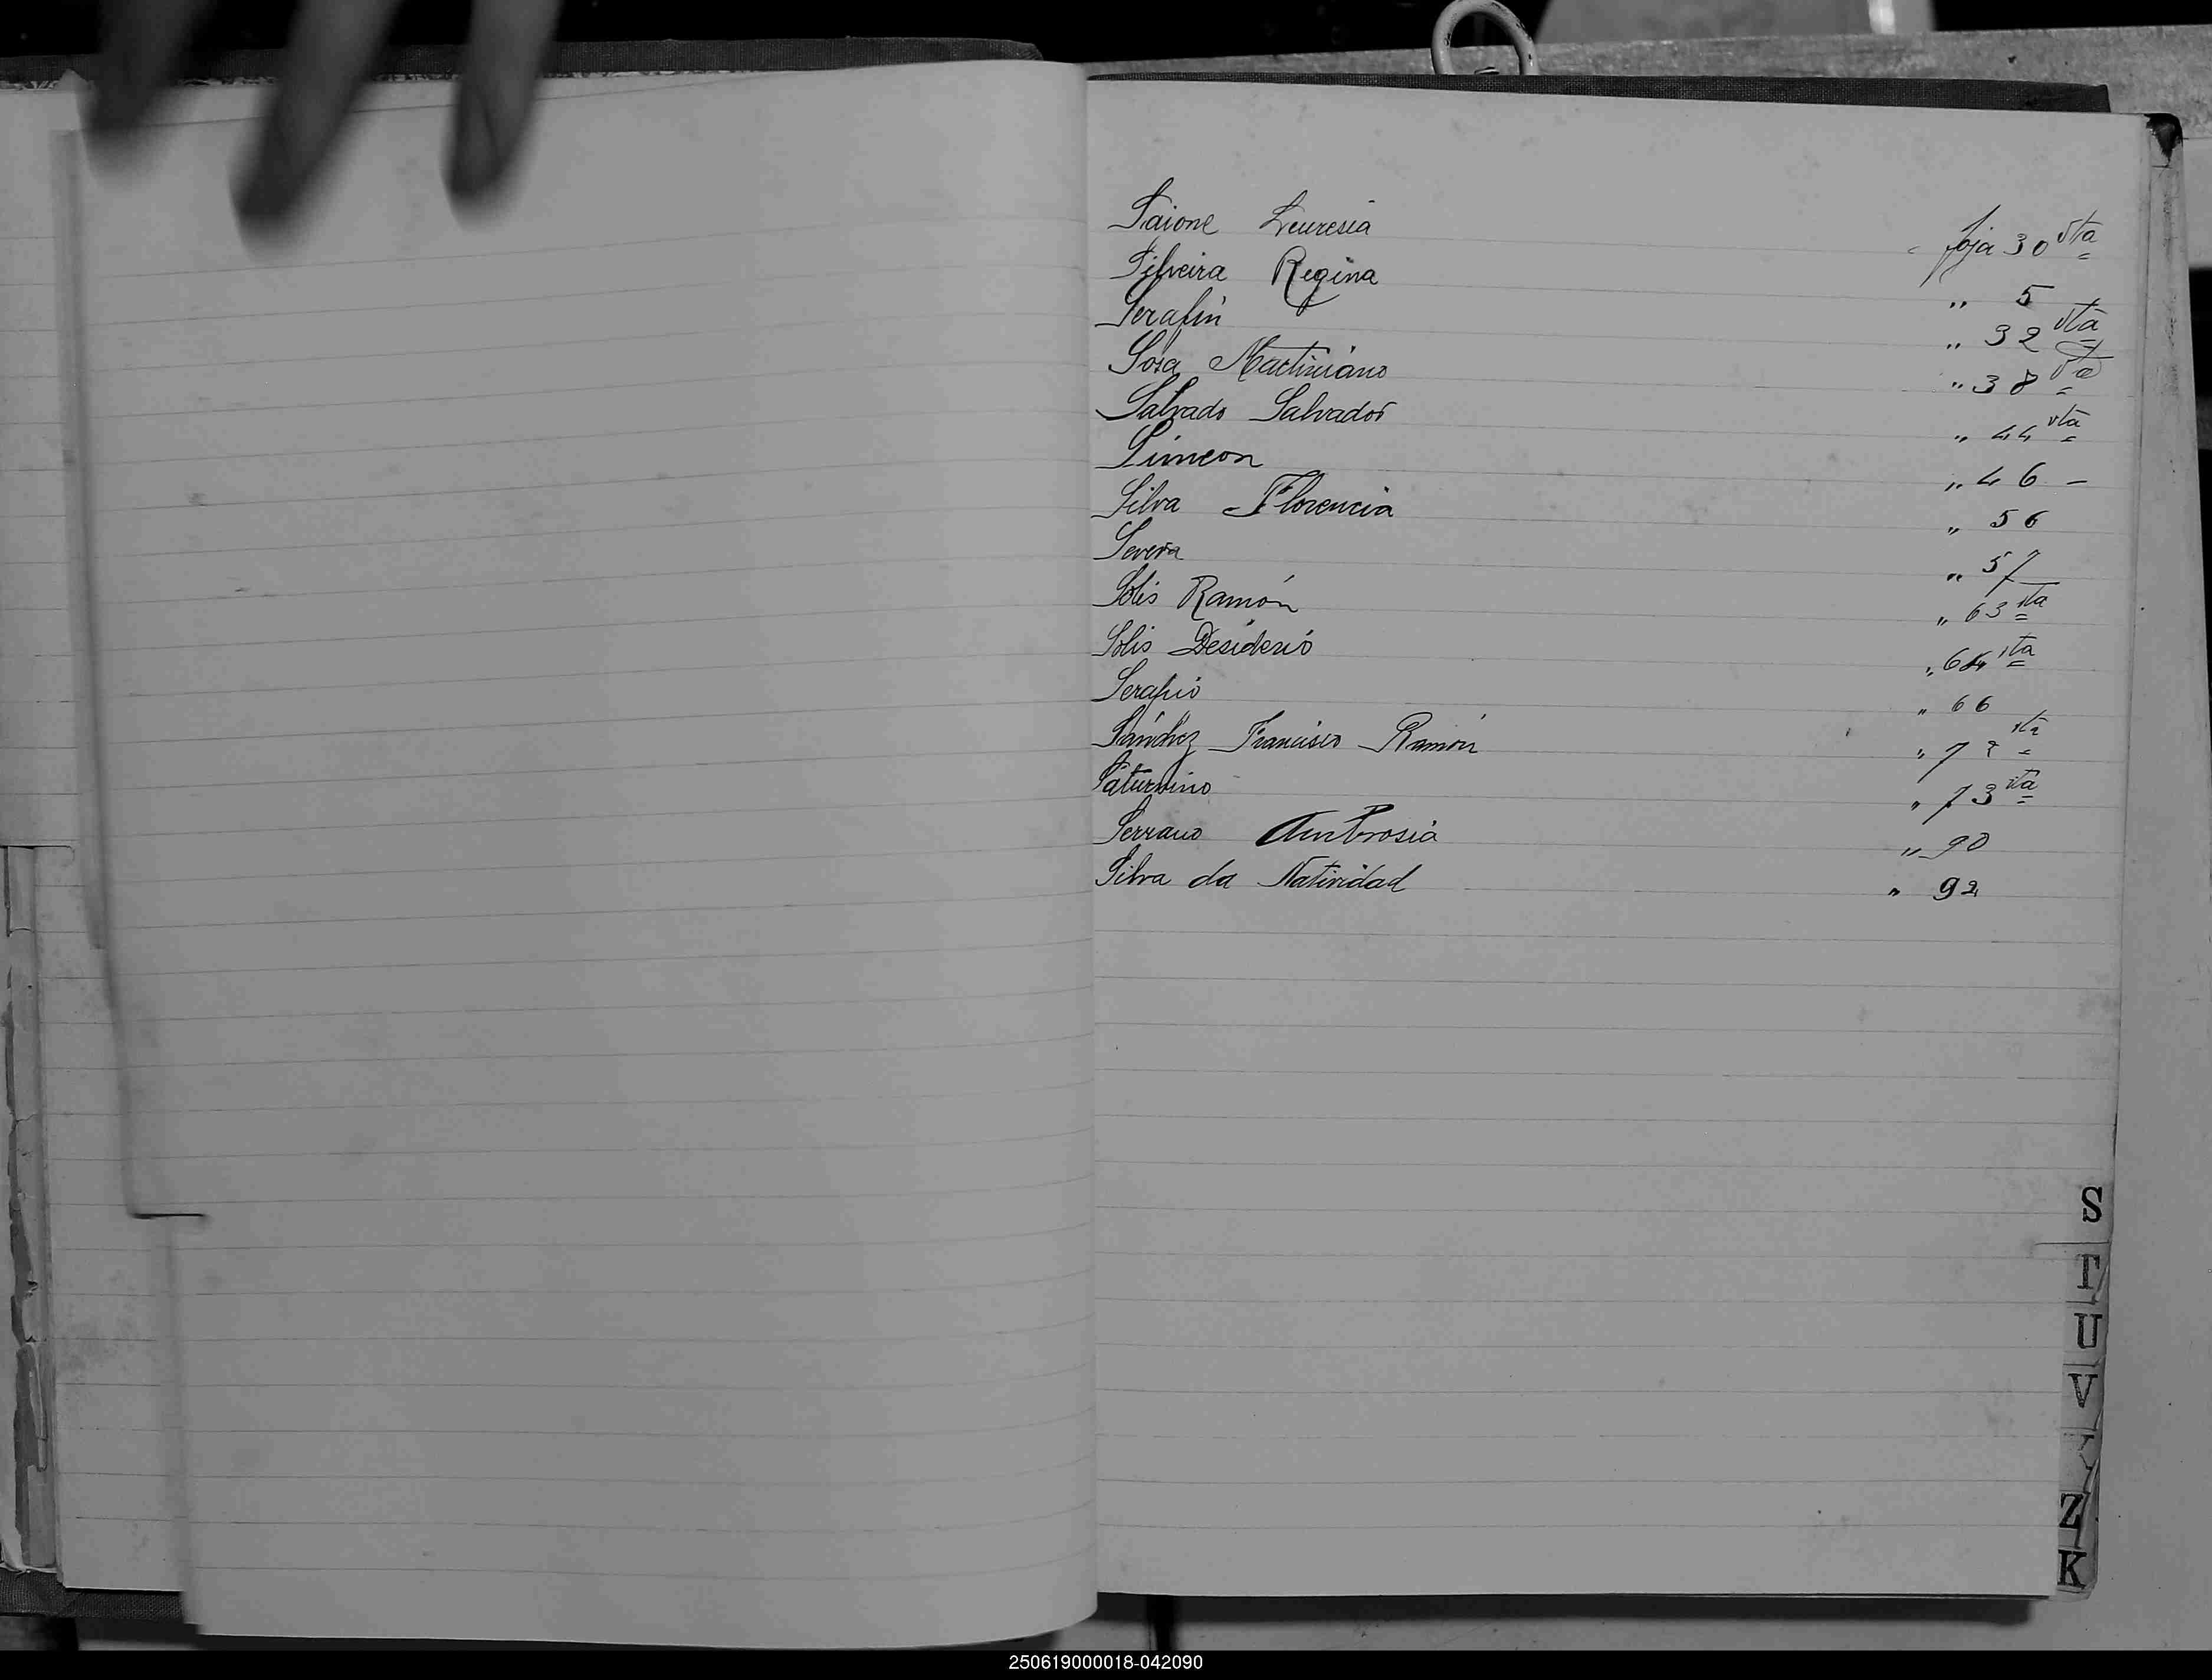 Saione Leuresia foja 30 vta
Silveira Regina " 5
Serafín " 32 vta
Sosa Martiniano " 38 vta
Salvado Salvador " 44 vta
Simeon " 46 –
Silva Florencia " 56
Severa " 57
Solis Ramón " 63 vta
Solis Desiderio " 64 vta
Serapio " 66
Sánchez Francisco Ramón " vta
Saturnino " 73 vta
Serrano Ambrosia " 90
Silva da Natividad " 92
S
T
U
V
Y
Z
K
250619000018-042090